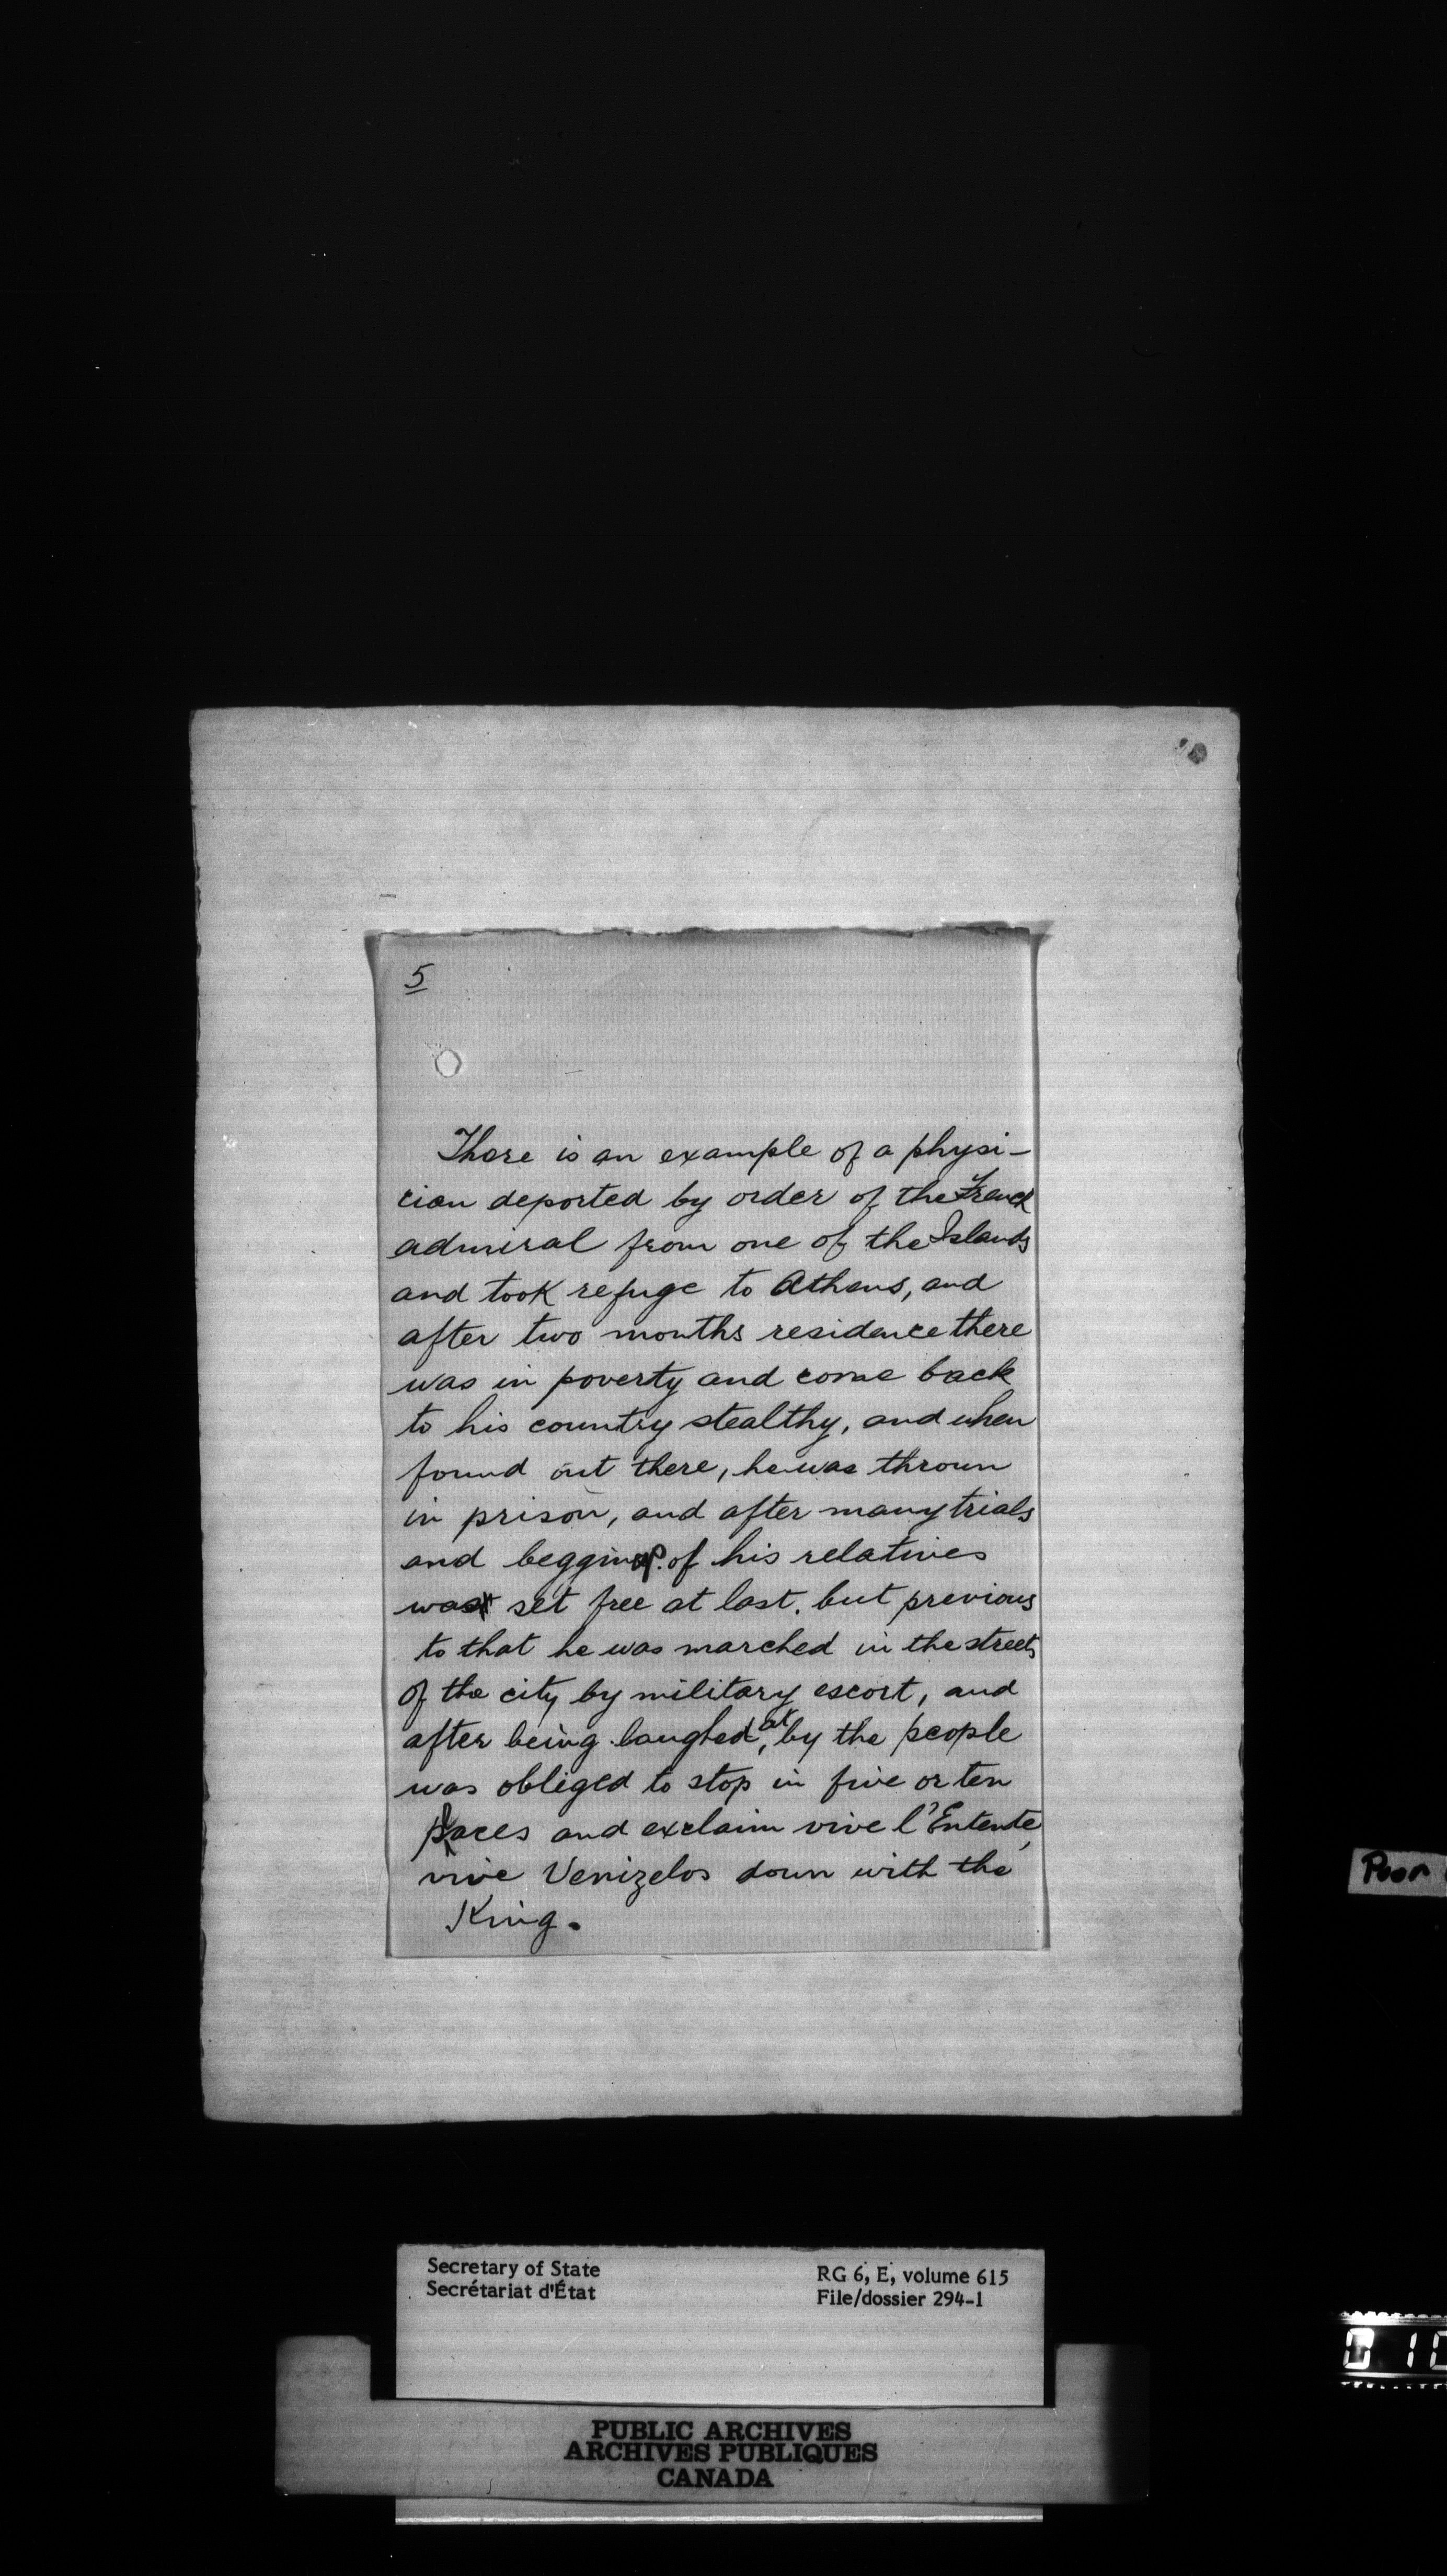 5
There is an example of a physi-
cian deported by order of the French
admiral from one of the Islands
and took refuge to Athens, and
after two months residence there
was in poverty and come back
to his country stealthy, and when
found out there, he was thrown
in prison, and after many trials
and begging of his relatives
was set free at last. but previous
to that he was marched in the streets
of the city by military escort, and
after being laughed at, by the people
was obliged to stop in five or ten
places and exclaim vive l'Entente,
vive Venizelos down with the
King.
Poor
Secretary of State
Secrétariat d'État
RG 6, E, volume 615
File/dossier 294-1
PUBLIC ARCHIVES
ARCHIVES PUBLIQUES
CANADA